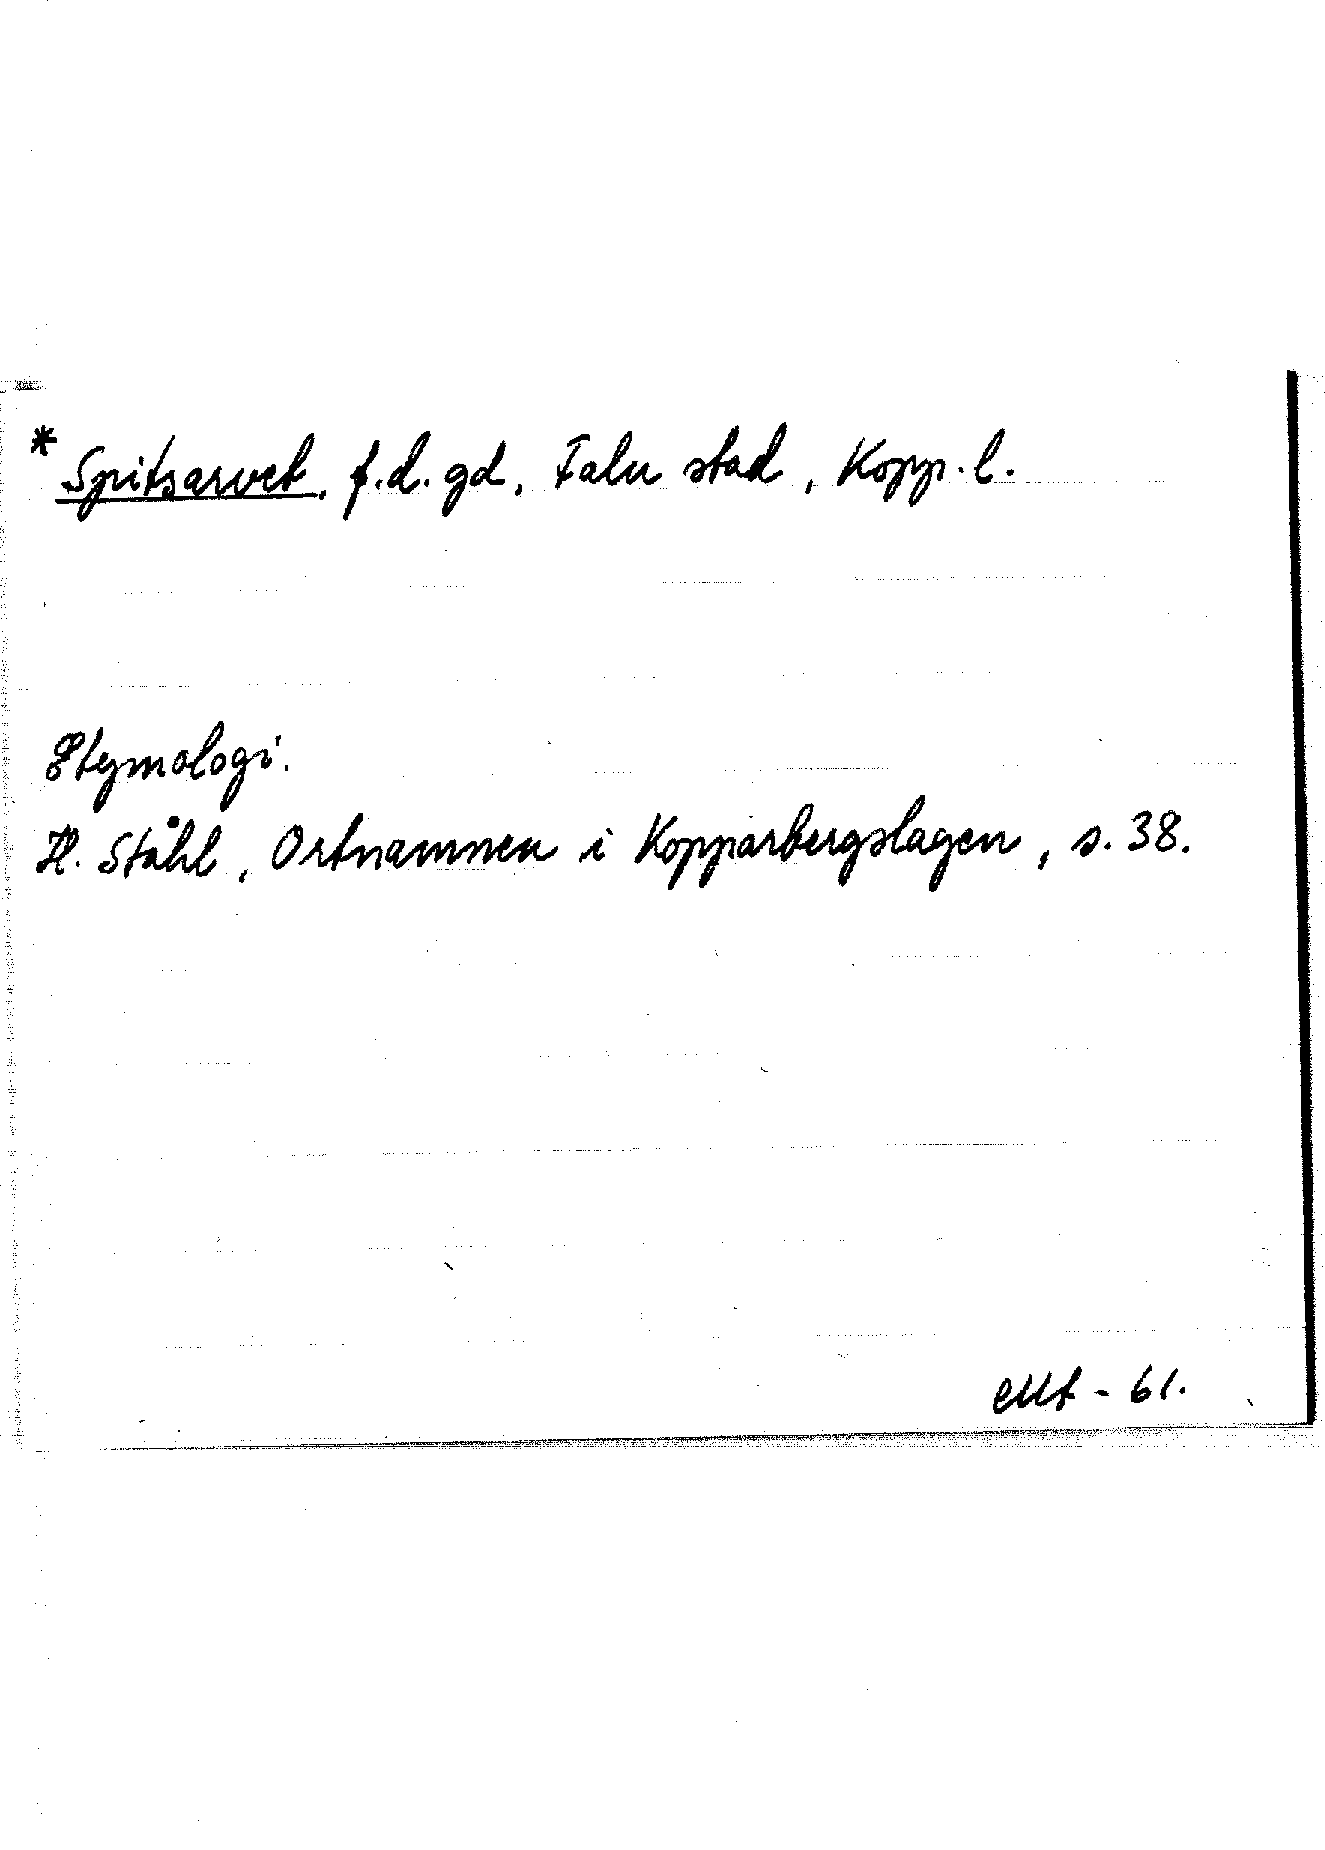 * Spitsarvet, f.d. gd, Falu stad, Kopp. l.
Etymologi.
H. Ståhl, Ortnamnen i Kopparbergslagen, s. 38.
- 61.